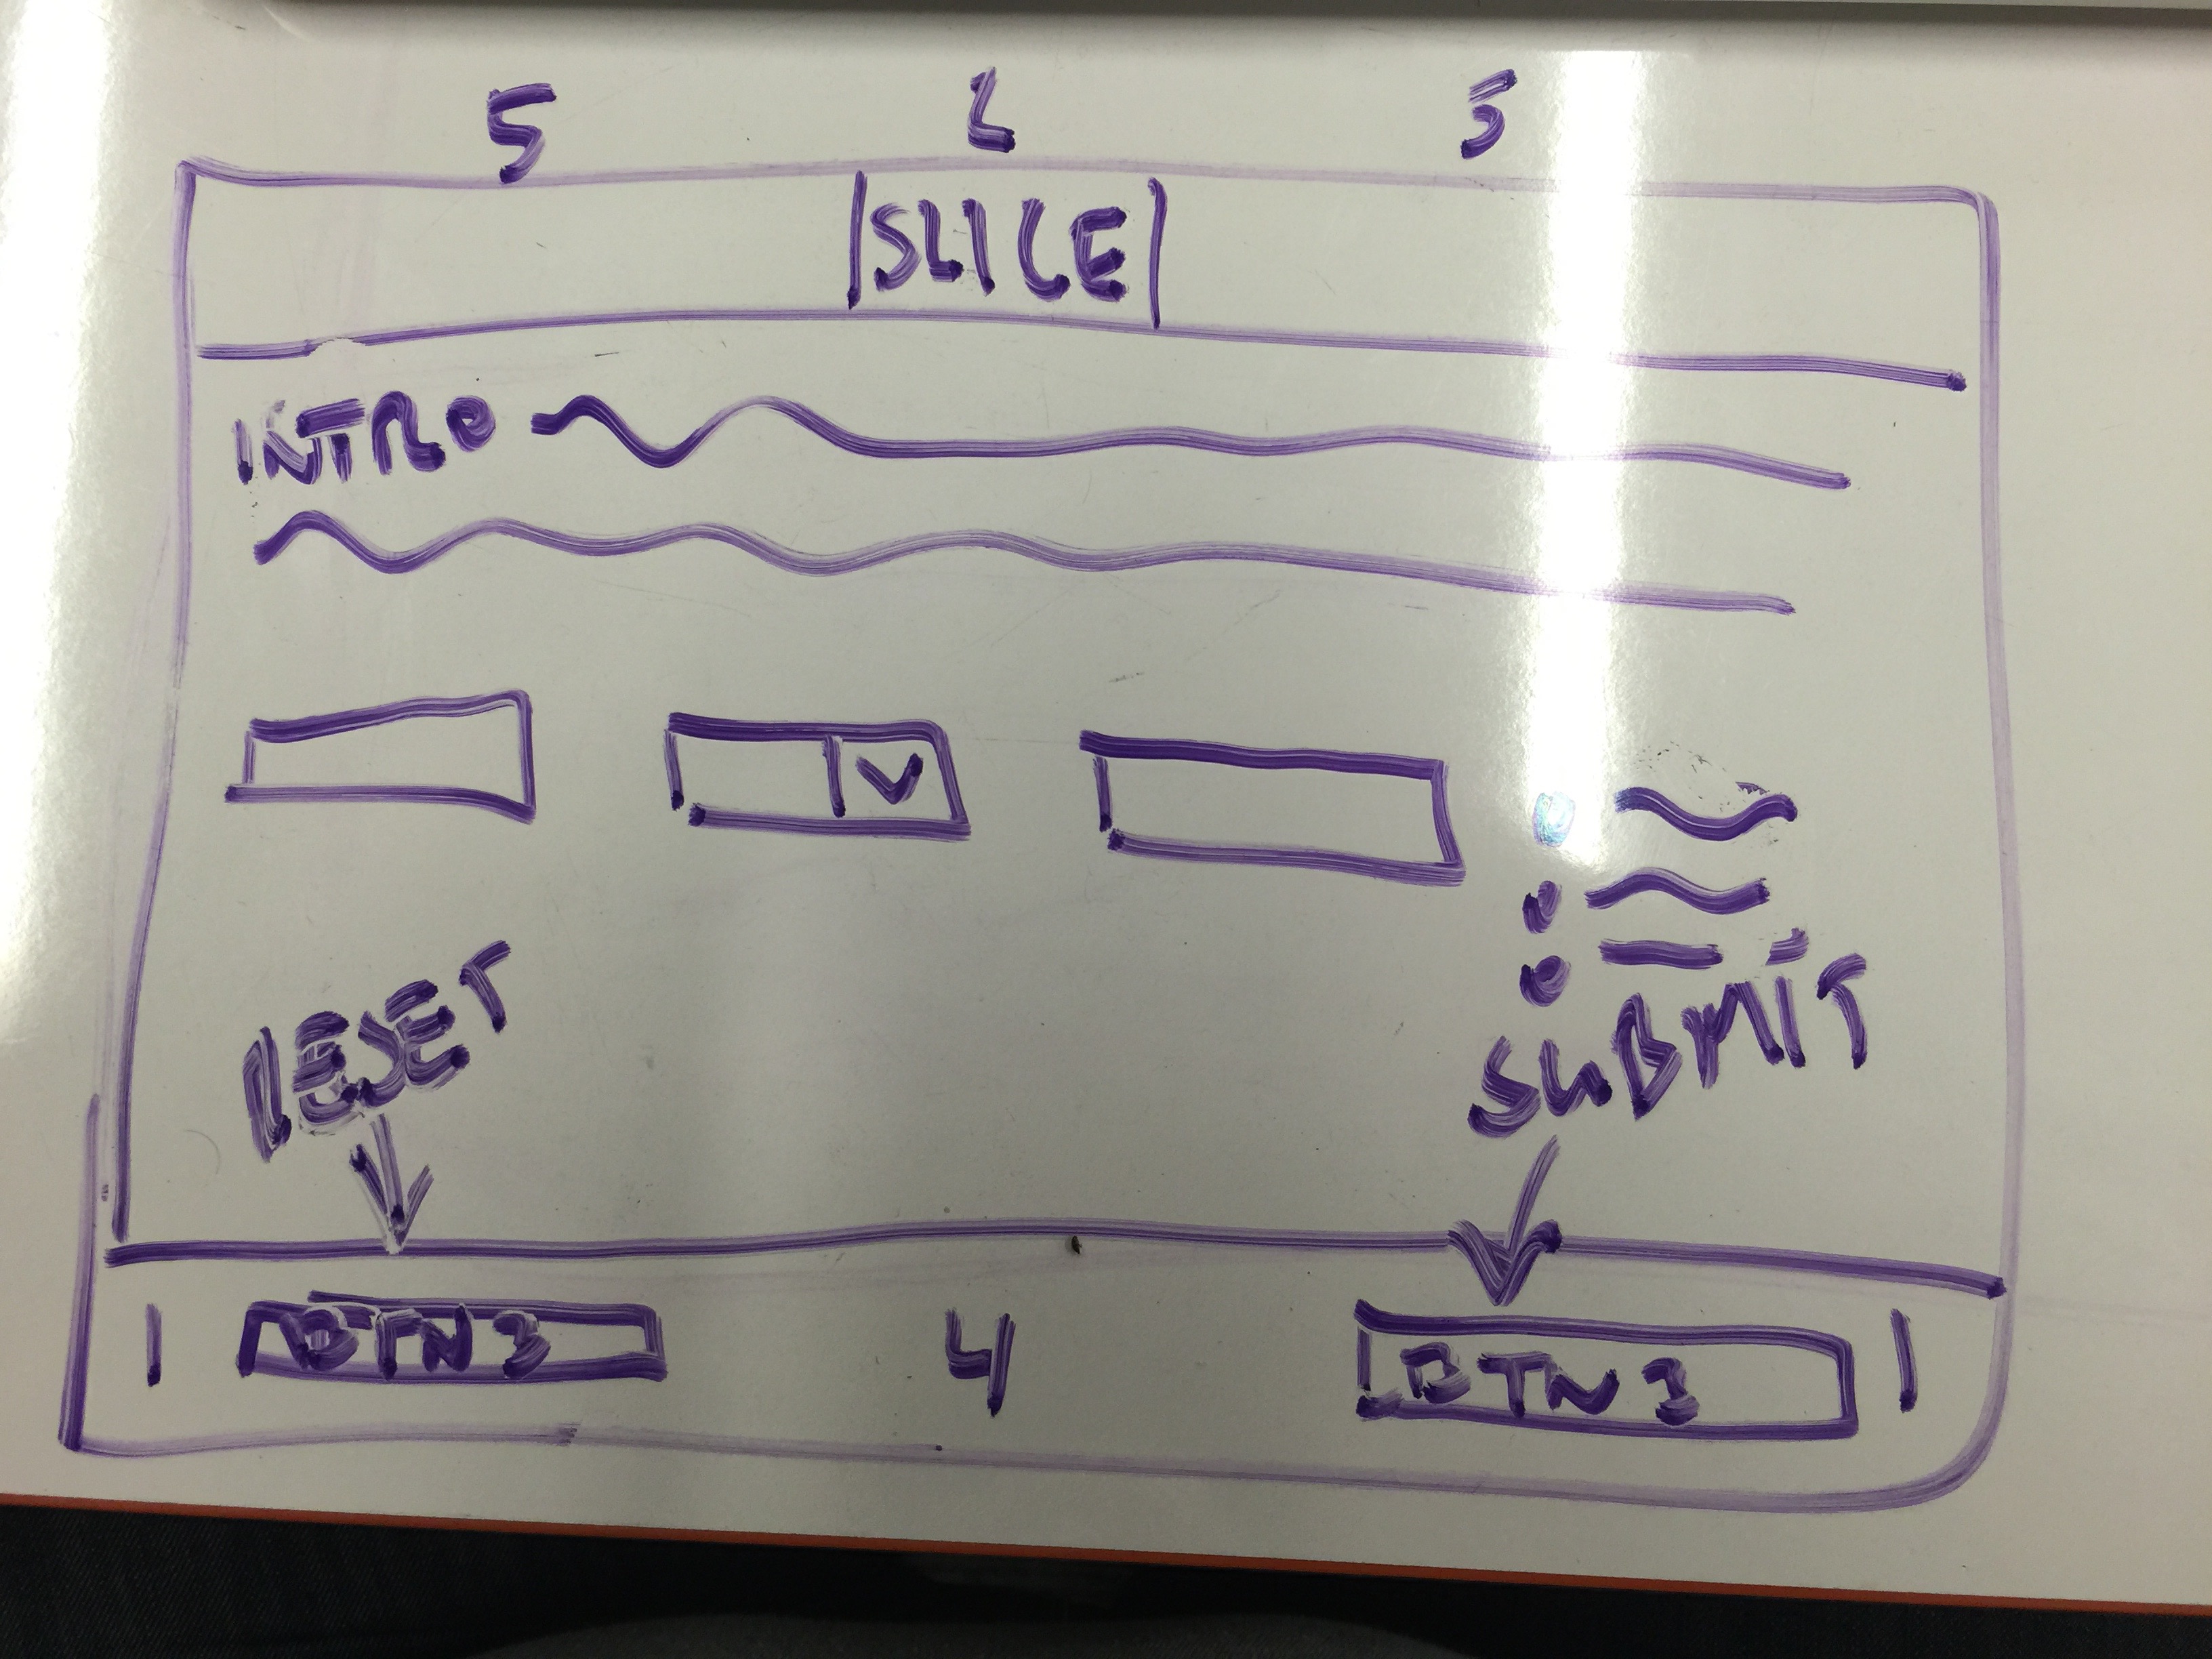 5 2 5
SLICE
INTRO
RESET
SUBMIT
1 BTN 3 4 BTN 3 1